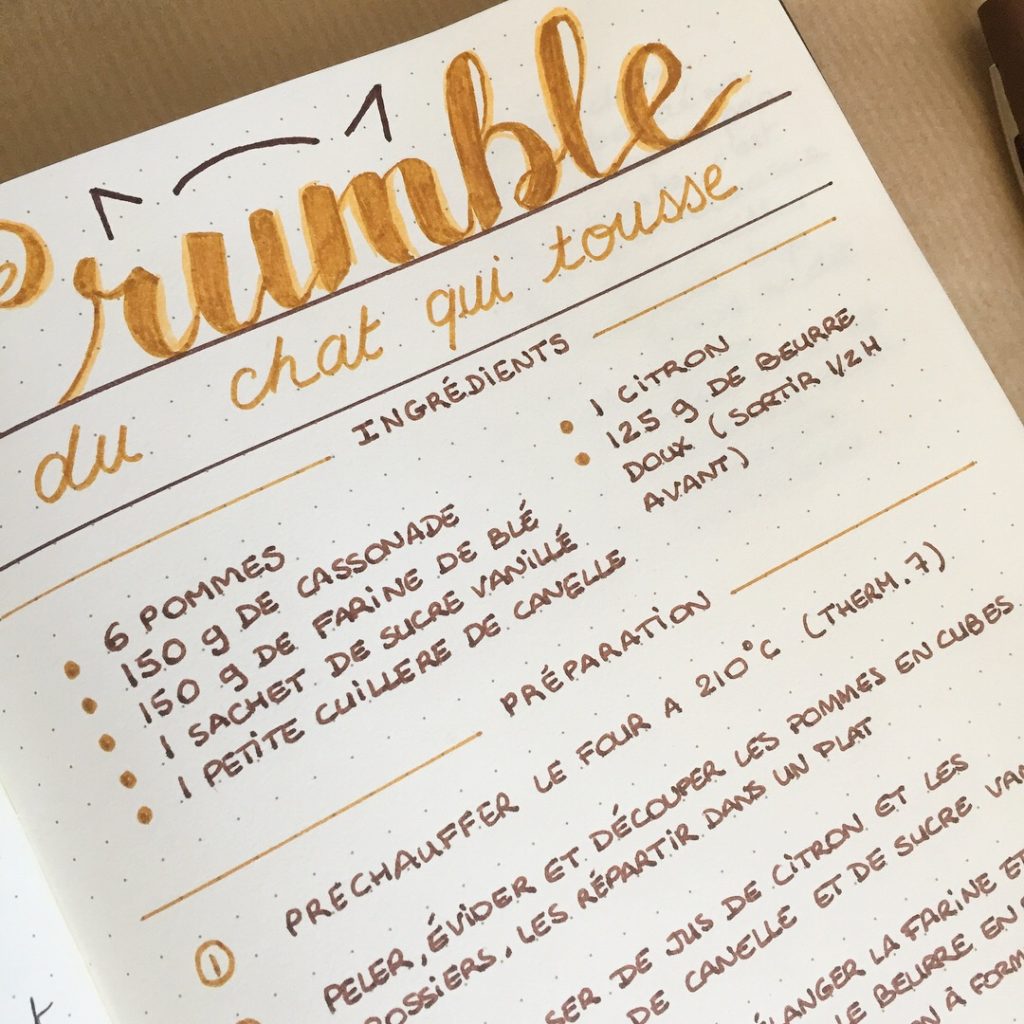 Crumble
du chat qui tousse
INGRÉDIENTS
6 POMMES
150 g DE CASSONADE
150 g DE FARINE DE BLÉ
1 SACHET DE SUCRE VANILLÉ
1 PETITE CUILLERE DE CANELLE
1 CITRON
125 g DE BEURRE
DOUX (SORTIR 1/2H
AVANT)
PRÉPARATION
1 PRECHAUFFER LE FOUR A 210°C (THERM.7)
PELER, ÉVIDER ET DÉCOUPER LES POMMES EN CUBES
ROSSIERS. LES RÉPARTIR DANS UN PLAT
SER DE JUS DE CITRON ET LES
DE CANELLE ET DE SUCRE VAN
ÉLANGER LA FARINE ET
LE BEURRE EN
N À FORM